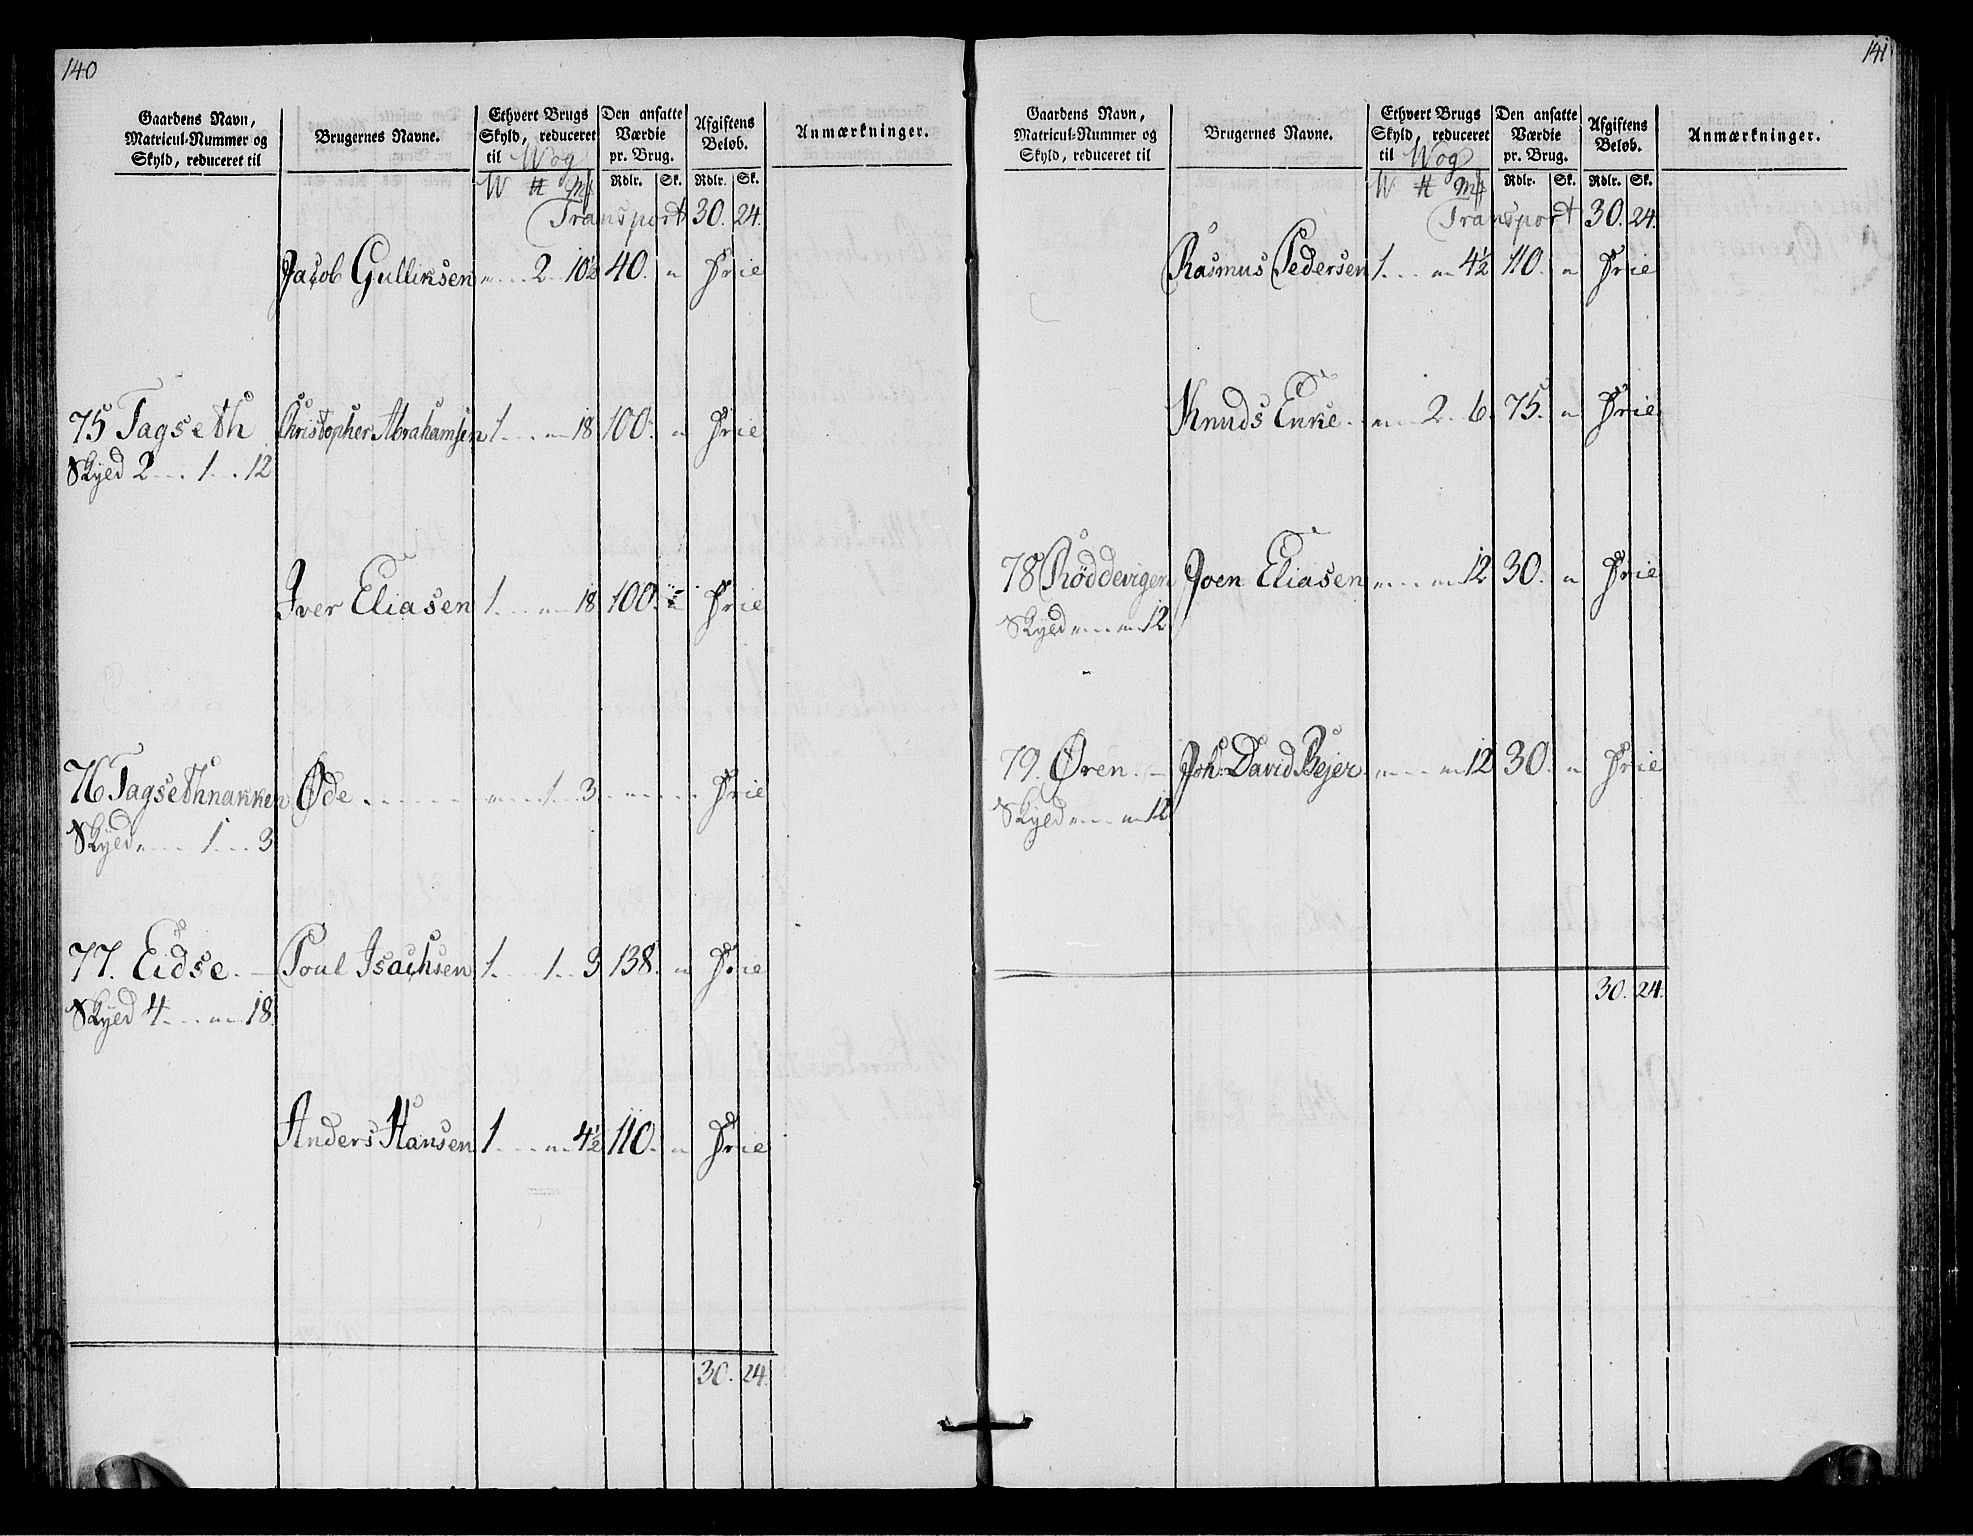 140
Gaardens Navn, Matricul-Nummer og Skyld, reduceret til | Brugernes Navne. | Ethvert Brugs Skyld, reduceret til Wog | Den ansatte Værdie pr. Brug. | Afgiftens Beløb. | Anmærkninger.
W ℔ Mk | Rdlr. | Sk. | Rdlr. | Sk.
Transport 30. 24.
Jacob Gulliksen „ . . 2 . 10½ 40. „ Frie
75 Tagseth Christopher Abrahamsen 1 . . . „ 18 100. „ Frie
Skyld 2 . . . 1 . . 12
Iver Eliasen 1 . . . „ 18 100. „ Frie
76 Tagsethnakken Øde . . . . . „ . . 1 . 3 . . . . . Frie
Skyld „ . . . 1 . . . 3
77. Eidse. — Poul Isachsen 1 . . . 1 . . 3 138. „ Frie
Skyld 4 . . . „ . 18.
Anders Hansen 1 . . . „ . 4½ 110. „ Frie
30. 24.
141
Gaardens Navn, Matricul-Nummer og Skyld, reduceret til | Brugernes Navne. | Ethvert Brugs Skyld, reduceret til Wog | Den ansatte Værdie pr. Brug. | Afgiftens Beløb. | Anmærkninger.
W ℔ Mk | Rdlr. | Sk. | Rdlr. | Sk.
Transport 30. 24.
Rasmus Pedersen 1 . . . „ 4½ 110. „ Frie
Knuds Enke . „ . . 2 . 6. 75. „ Frie
78 Røddevigen Joen Eliasen „ . . . „ 12 30. „ Frie
Skyld „ . . . „ 12.
79. Øren. — Joh. David Bejer. „ . . . „ 12 30. „ Frie
Skyld „ . . . „ 12
30. 24.